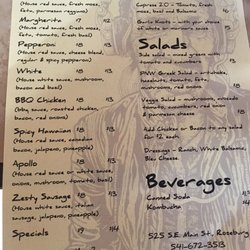 (House red sauce, fresh mozz,
Margherita 17 13
(House red sauce, fresh mozz,
feta, tomato, fresh basil)
Pepperoni 13
(House red sauce, cheese blend,
regular & spicy pepperoni)
White 18 13
(White sauce, mushroom,
bacon and basil)
BBQ Chicken 18 13
(bbq sauce, roasted chicken,
bacon, red onions)
Spicy Hawaiian 18 13
(House red sauce, canadian
bacon, jalapeno, pineapple)
Apollo 18 13
(House red sauce or white sauce,
onions, mushroom, tomato, basil)
Zesty Sausage 18 13
(House white sauce, italian
sausage, jalapeno, pineapple)
Specials 19 14
Cypress 2.0 - Tomato, fresh
mozz, basil and Balsamic 16
Garlic Knots - with your choice
of white or marinara sauce
Salads
Side salad - mixed greens with
tomato and cucumber
PNW Greek Salad - artichoke,
hazelnuts, tomato, feta,
mushroom, red onion
Veggie Salad - mushroom, avocado
tomato, cucumber, red onion
and cheese
Add Chicken or Bacon to any salad
for $2 each
Dressings - Ranch, White Balsamic,
Bleu Cheese
Beverages
Canned Soda
Kombucha
525 S.E. Main St., Roseburg
541-672-3513